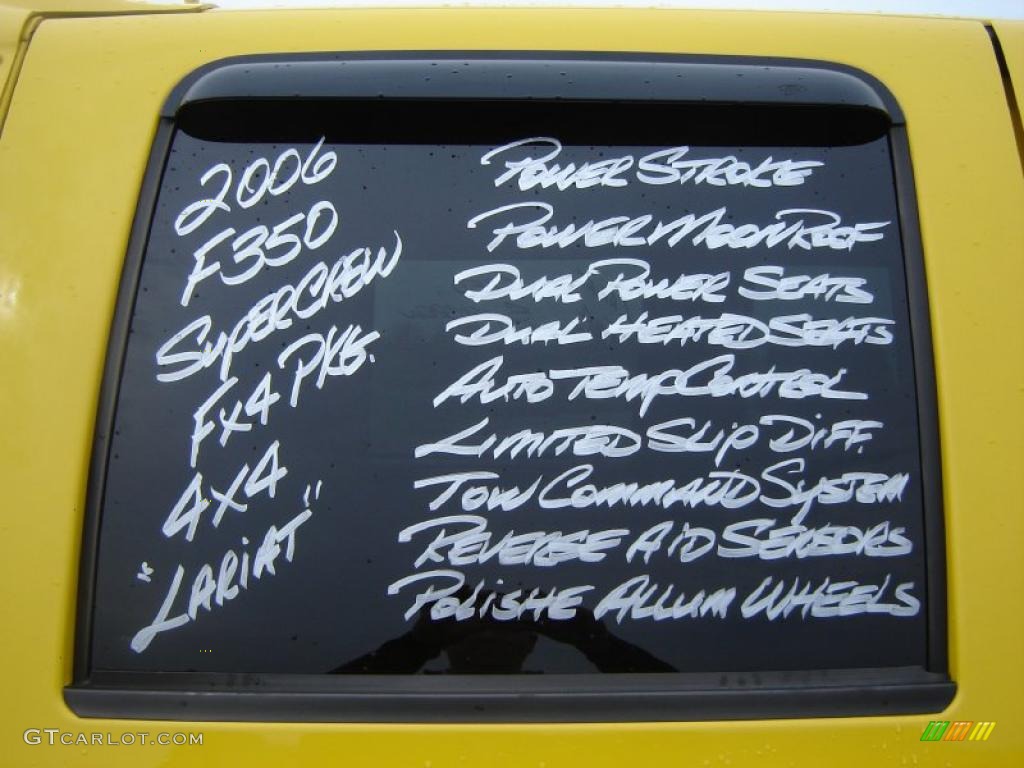 2006
F350
SUPERCREW
Fx4 PKG.
4x4
"LARIAT"
POWER STROKE
POWER MOONROOF
DUAL POWER SEATS
DUAL HEATED SEATS
AUTO TEMP CONTROL
LIMITED SLIP DIFF.
TOW COMMAND SYSTEM
REVERSE AID SENSORS
POLISHE ALLUM WHEELS
GTCARLOT.COM